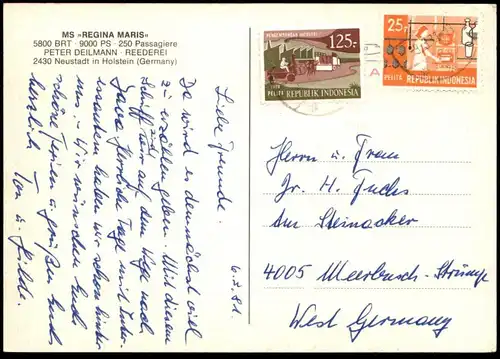 MS »REGINA MARIS«
5800 BRT · 9000 PS · 250 Passagiere
PETER DEILMANN · REEDEREI
2430 Neustadt in Holstein (Germany)
6.3.81.
Liebe Freunde.
Da wird es demnächst viel
zu erzählen geben. Mit diesem
Schiff sind wir auf dem Wege nach
Java. Herrliche Tage mit Inter-
essantem haben wir schon hinter
uns. Wir wünschen Euch
schöne Ferien u. grüßen Euch
herzlich
Ton u. Hilde.
125.-
1978
PELITA
REPUBLIK INDONESIA
25.-
PELITA
REPUBLIK INDONESIA
A
Herrn u. Frau
Dr. H. Fuchs
Am Steinacker
4005 Meerbusch-Strümp
West Germany